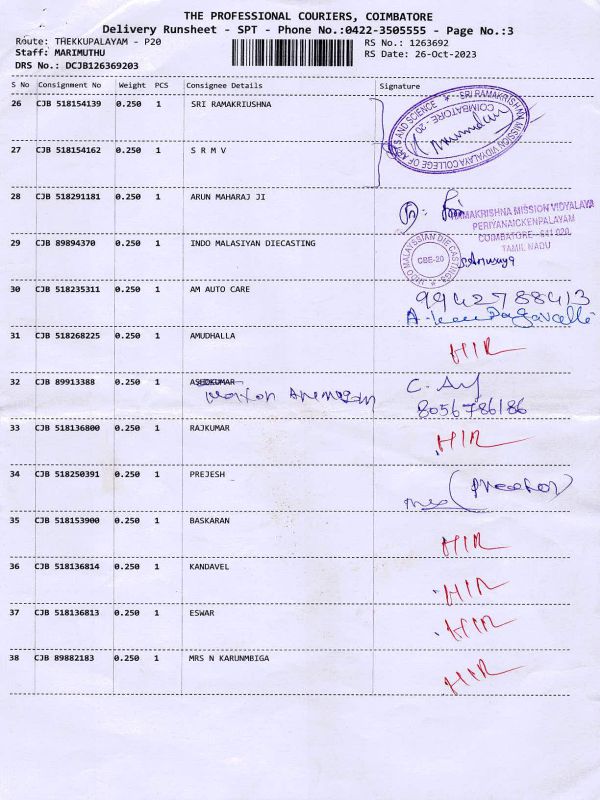 THE PROFESSIONAL COURIERS, COIMBATORE
Delivery Runsheet - SPT - Phone No.:0422-3505555 - Page No.:3
Route: THEKKUPALAYAM - P20
RS No.: 1263692
Staff: MARIMUTHU
RS Date: 26-Oct-2023
DRS No.: DCJB126369203
S No Consignment No Weight PCS Consignee Details Signature
26 CJB 518154139 0.250 1 SRI RAMAKRIUSHNA
SRI RAMAKRISHNA MISSION VIDYALAYA COLLEGE OF ARTS AND SCIENCE
COIMBATORE - 20
27 CJB 518154162 0.250 1 S R M V
28 CJB 518291181 0.250 1 ARUN MAHARAJ JI
RAMAKRISHNA MISSION VIDYALAYA
PERIYANAICKENPALAYAM
COIMBATORE - 641 020
TAMIL NADU
29 CJB 89894370 0.250 1 INDO MALASIYAN DIECASTING
INDO MALAYSSIAN DIE CASTINGS
CBE-20
30 CJB 518235311 0.250 1 AM AUTO CARE
9942788413
31 CJB 518268225 0.250 1 AMUDHALLA HIR
32 CJB 89913388 0.250 1 ASHOKUMAR
8056786186
33 CJB 518136800 0.250 1 RAJKUMAR HIR
34 CJB 518250391 0.250 1 PREJESH
35 CJB 518153900 0.250 1 BASKARAN HIR
36 CJB 518136814 0.250 1 KANDAVEL HIR
37 CJB 518136813 0.250 1 ESWAR HIR
38 CJB 89882183 0.250 1 MRS N KARUNMBIGA HIR